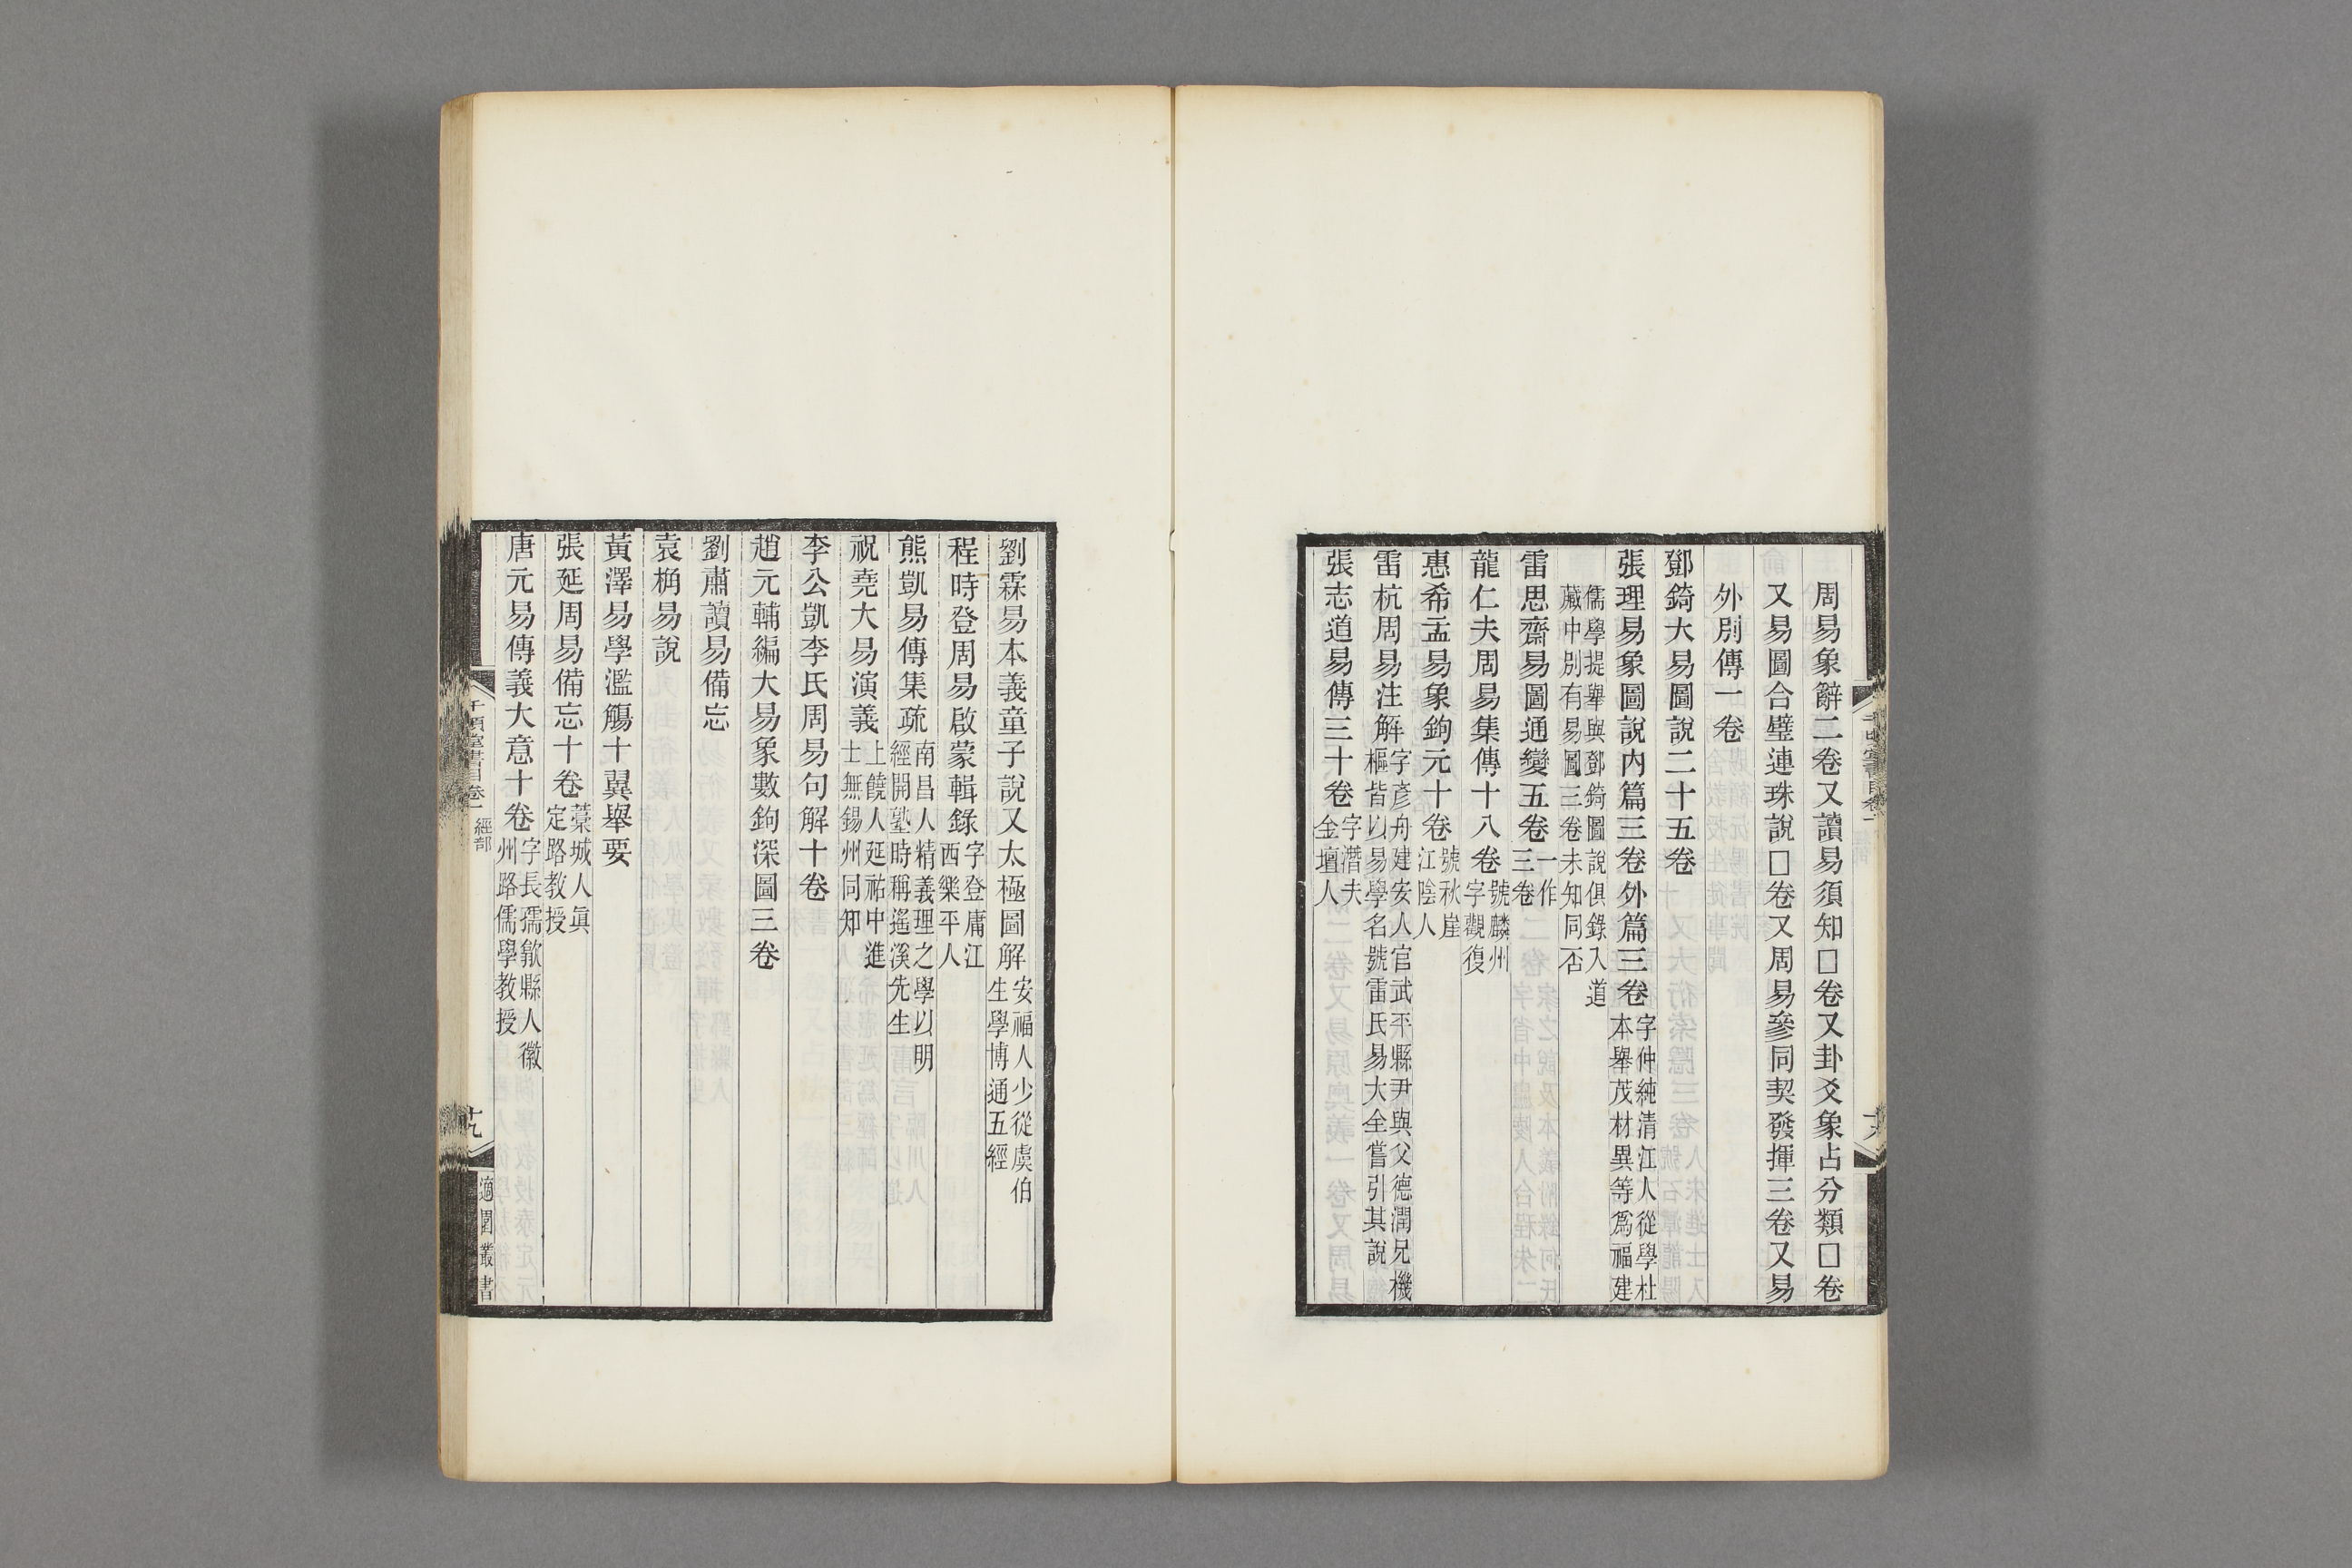 周易象辭二卷又讀易須知□卷又卦爻象占分類□卷
又易圖合璧連珠說□卷又周易參同契發揮三卷又易
外別傳一卷
鄧錡大易圖說二十五卷
張理易象圖說內篇三卷外篇三卷字仲純清江人從學杜
本舉茂材異等爲福建
儒學提舉與鄧錡圖說俱錄入道
藏中別有易圖三卷未知同否
雷思齋易圖通變五卷一作
三卷
龍仁夫周易集傳十八卷號麟州
字觀復
惠希孟易象鉤元十卷號秋崖
江陰人
雷杭周易注解字彥舟建安人官武平縣尹與父德潤兄機
樞皆以易學名號雷氏易大全嘗引其說
張志道易傳三十卷字潛夫
金壇人
劉霖易本義童子說又太極圖解安福人少從虞伯
生學博通五經
程時登周易啟蒙輯錄字登庸江
西樂平人
熊凱易傳集疏南昌人精義理之學以明
經開塾時稱遙溪先生
祝堯大易演義上饒人延祐中進
士無錫州同知
李公凱李氏周易句解十卷
趙元輔編大易象數鉤深圖三卷
劉肅讀易備忘
袁桷易說
黃澤易學濫觴十翼舉要
張延周易備忘十卷藁城人眞
定路教授
唐元易傳義大意十卷字長孺歙縣人徽
州路儒學教授
千頃堂書目卷一
經部
十九
適園叢書